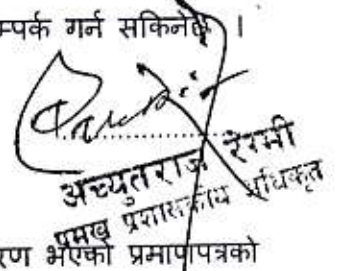 म्पर्क गर्न सकिनेछ ।
अच्युतराज रेग्मी
प्रमुख प्रशासकीय अधिकृत
रण भएको प्रमाणपत्रको